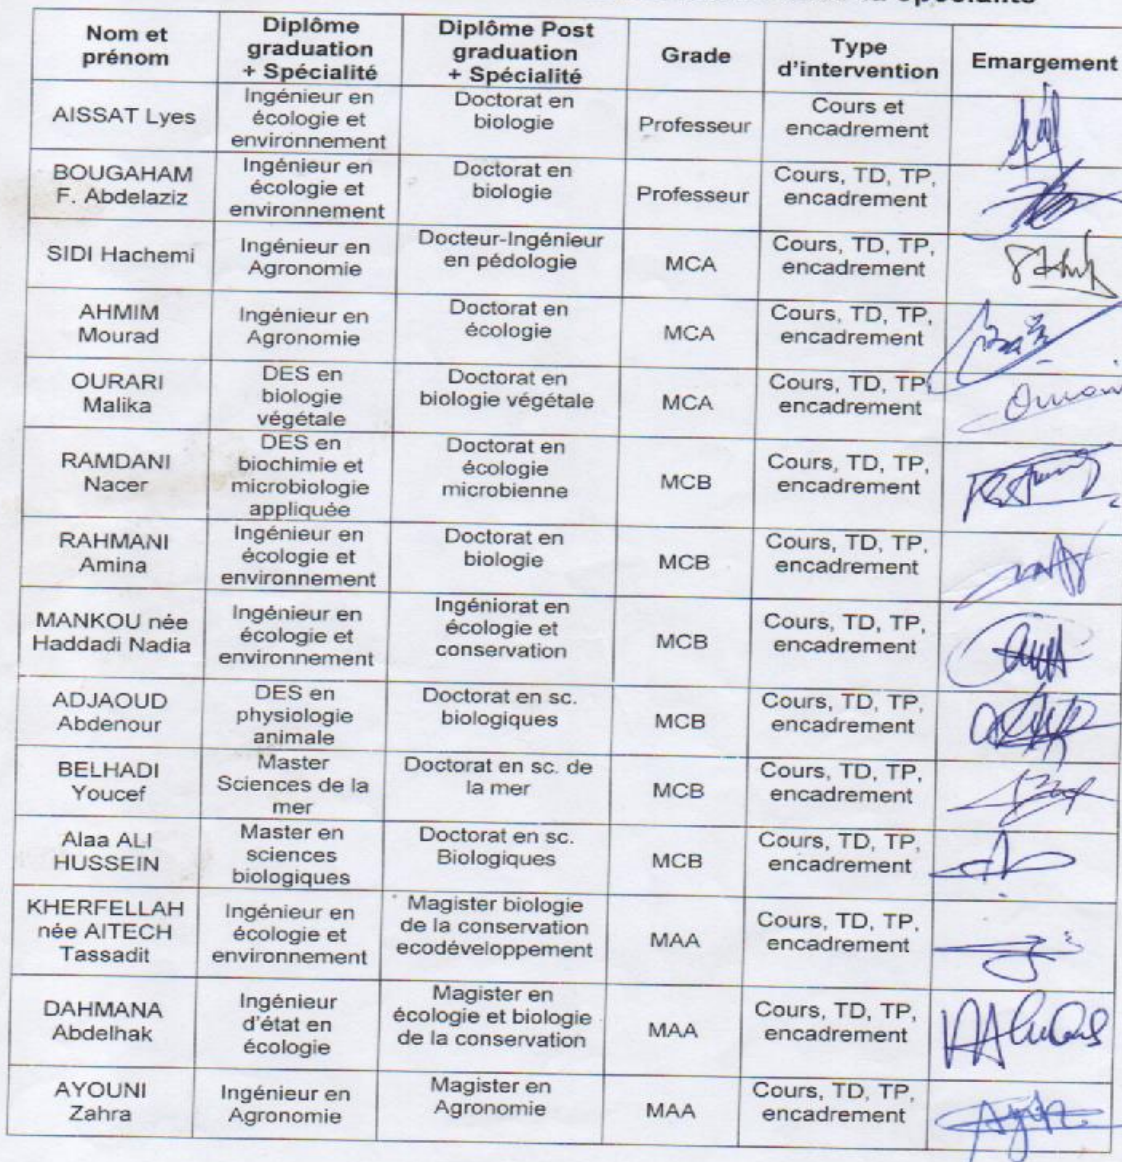 spécialité
Nom et prénom | Diplôme graduation + Spécialité | Diplôme Post graduation + Spécialité | Grade | Type d'intervention | Emargement
AISSAT Lyes | Ingénieur en écologie et environnement | Doctorat en biologie | Professeur | Cours et encadrement
BOUGAHAM F. Abdelaziz | Ingénieur en écologie et environnement | Doctorat en biologie | Professeur | Cours, TD, TP, encadrement
SIDI Hachemi | Ingénieur en Agronomie | Docteur-Ingénieur en pédologie | MCA | Cours, TD, TP, encadrement
AHMIM Mourad | Ingénieur en Agronomie | Doctorat en écologie | MCA | Cours, TD, TP, encadrement
OURARI Malika | DES en biologie végétale | Doctorat en biologie végétale | MCA | Cours, TD, TP, encadrement
RAMDANI Nacer | DES en biochimie et microbiologie appliquée | Doctorat en écologie microbienne | MCB | Cours, TD, TP, encadrement
RAHMANI Amina | Ingénieur en écologie et environnement | Doctorat en biologie | MCB | Cours, TD, TP, encadrement
MANKOU née Haddadi Nadia | Ingénieur en écologie et environnement | Ingéniorat en écologie et conservation | MCB | Cours, TD, TP, encadrement
ADJAOUD Abdenour | DES en physiologie animale | Doctorat en sc. biologiques | MCB | Cours, TD, TP, encadrement
BELHADI Youcef | Master Sciences de la mer | Doctorat en sc. de la mer | MCB | Cours, TD, TP, encadrement
Alaa ALI HUSSEIN | Master en sciences biologiques | Doctorat en sc. Biologiques | MCB | Cours, TD, TP, encadrement
KHERFELLAH née AITECH Tassadit | Ingénieur en écologie et environnement | Magister biologie de la conservation ecodéveloppement | MAA | Cours, TD, TP, encadrement
DAHMANA Abdelhak | Ingénieur d'état en écologie | Magister en écologie et biologie de la conservation | MAA | Cours, TD, TP, encadrement
AYOUNI Zahra | Ingénieur en Agronomie | Magister en Agronomie | MAA | Cours, TD, TP, encadrement